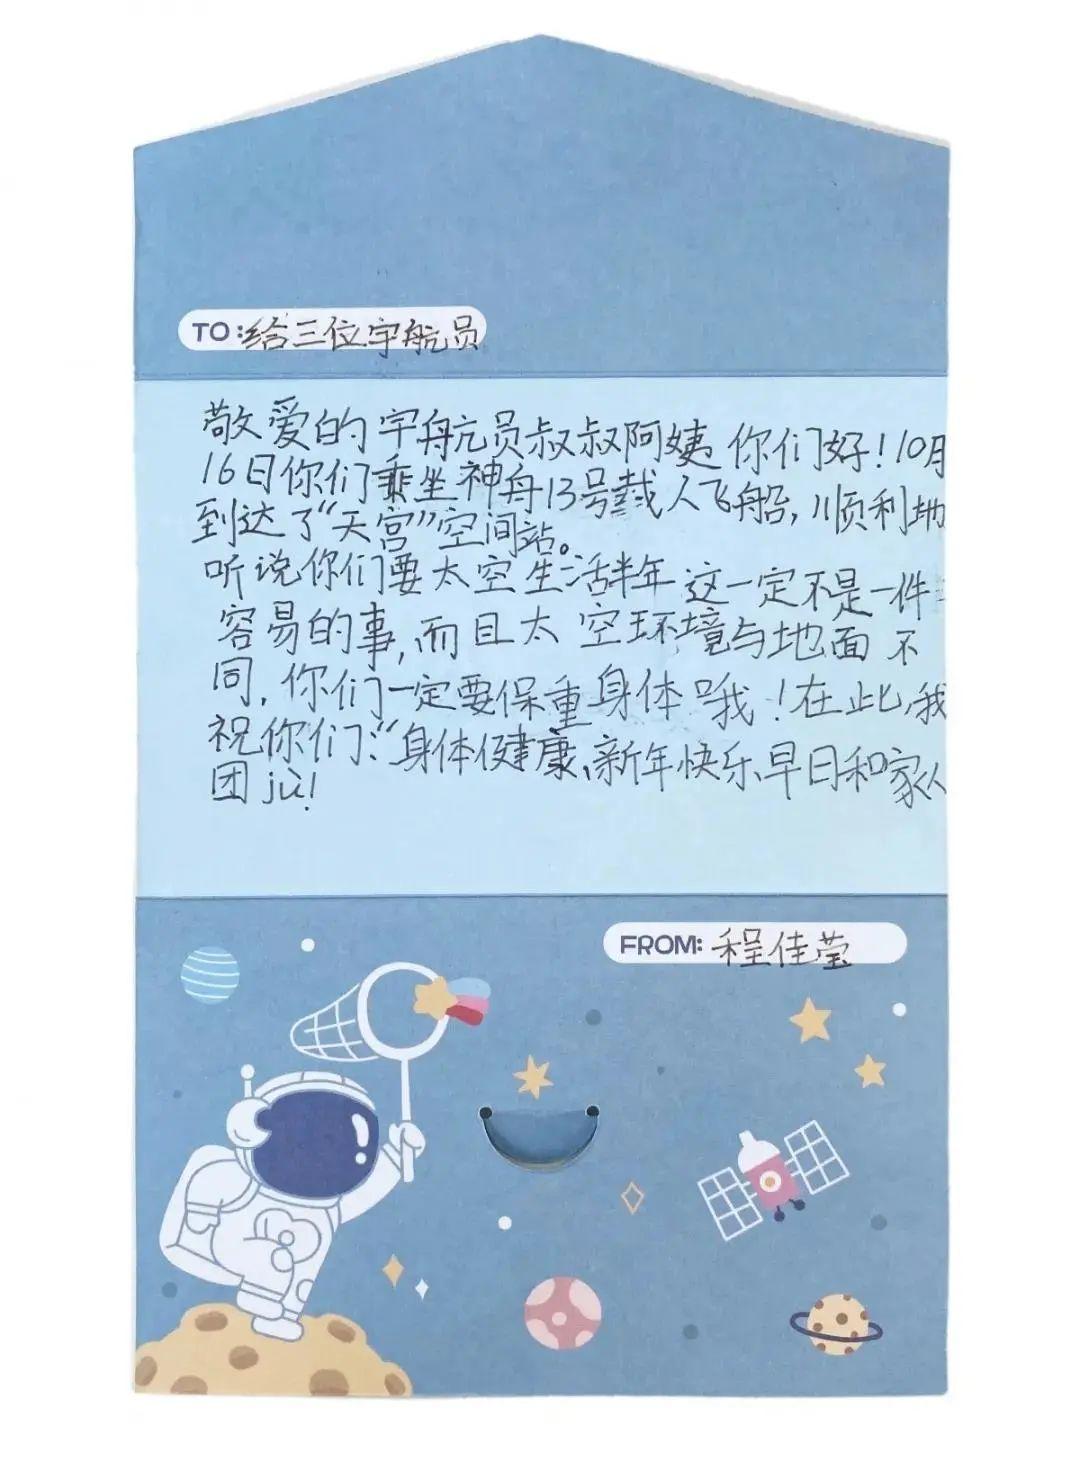 TO:给三位宇航员
敬爱的宇航员叔叔阿姨你们好!10月
16日你们乘坐神舟13号载人飞船,顺利地
到达了“天宫”空间站。
听说你们要太空生活半年这一定不是一件
容易的事,而且太空环境与地面不
同,你们一定要保重身体哦!在此,我
祝你们:“身体健康、新年快乐、早日和家人
团jù!
FROM:程佳莹